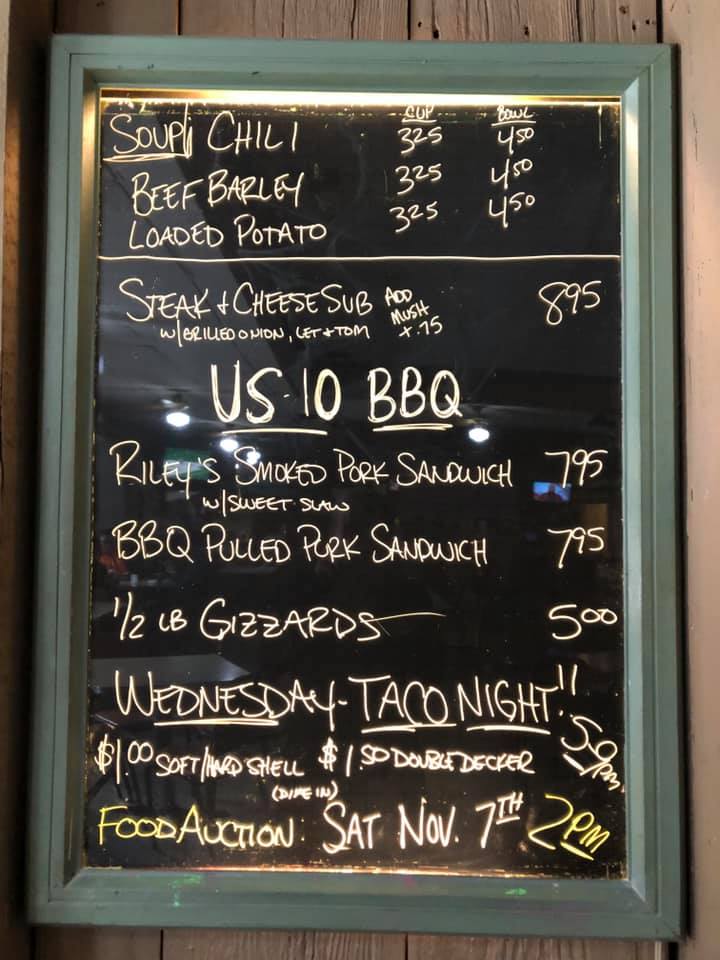 CUP BOWL
SOUP CHILI 325 450
BEEF BARLEY 325 450
LOADED POTATO 325 450
STEAK + CHEESE SUB ADD MUSH +.75 895
W/GRILLED ONION, LET + TOM
US-10 BBQ
RILEY'S SMOKED PORK SANDWICH 795
W/SWEET SLAW
BBQ PULLED PORK SANDWICH 795
1/2 LB GIZZARDS 500
WEDNESDAY-TACO NIGHT!!
5-9PM
$1.00 SOFT/HARD SHELL $1.50 DOUBLE DECKER
(DINE IN)
FOOD AUCTION SAT NOV. 7TH 2PM